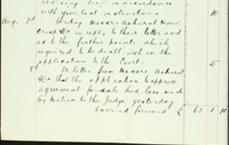 with your last instructions 10
Aug. 1st Writing Messrs Ashurst Morris
Crisp &Co in reply to their letter and
as to the further point which
required to be dealt with on the
application to the Court. 5
On letter from Messrs Ashurst
&Co that the application to approve
agreement for sale had been made
by Motion to the Judge yesterday 5
carried forward £ 62 1 10